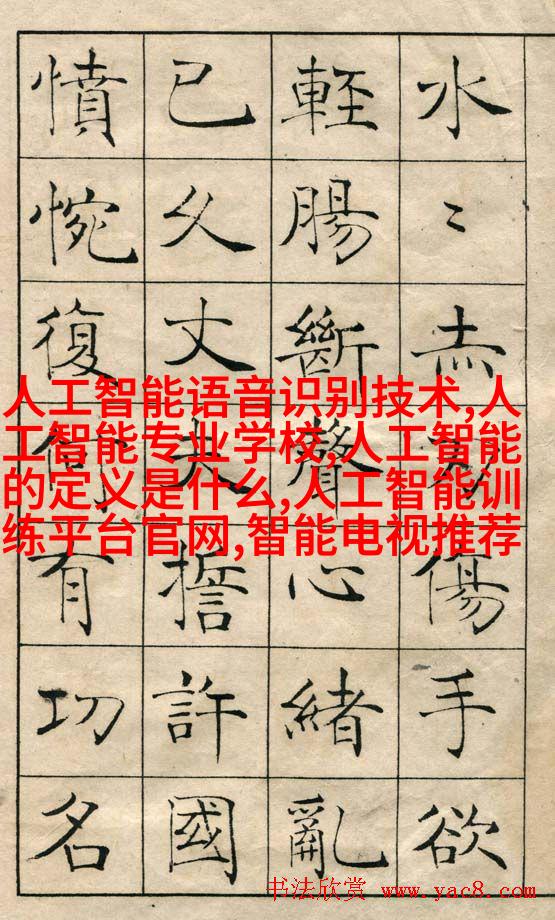 水〻赤刃傷手欲
輕腸斷聲心緒亂
已久丈夫誓許國
憤惋復何有功名
人工智能语音识别技术,人
工智能专业学校,人工智能
的定义是什么,人工智能训
练平台官网,智能电视推荐
书法欣赏 www.yac8.com